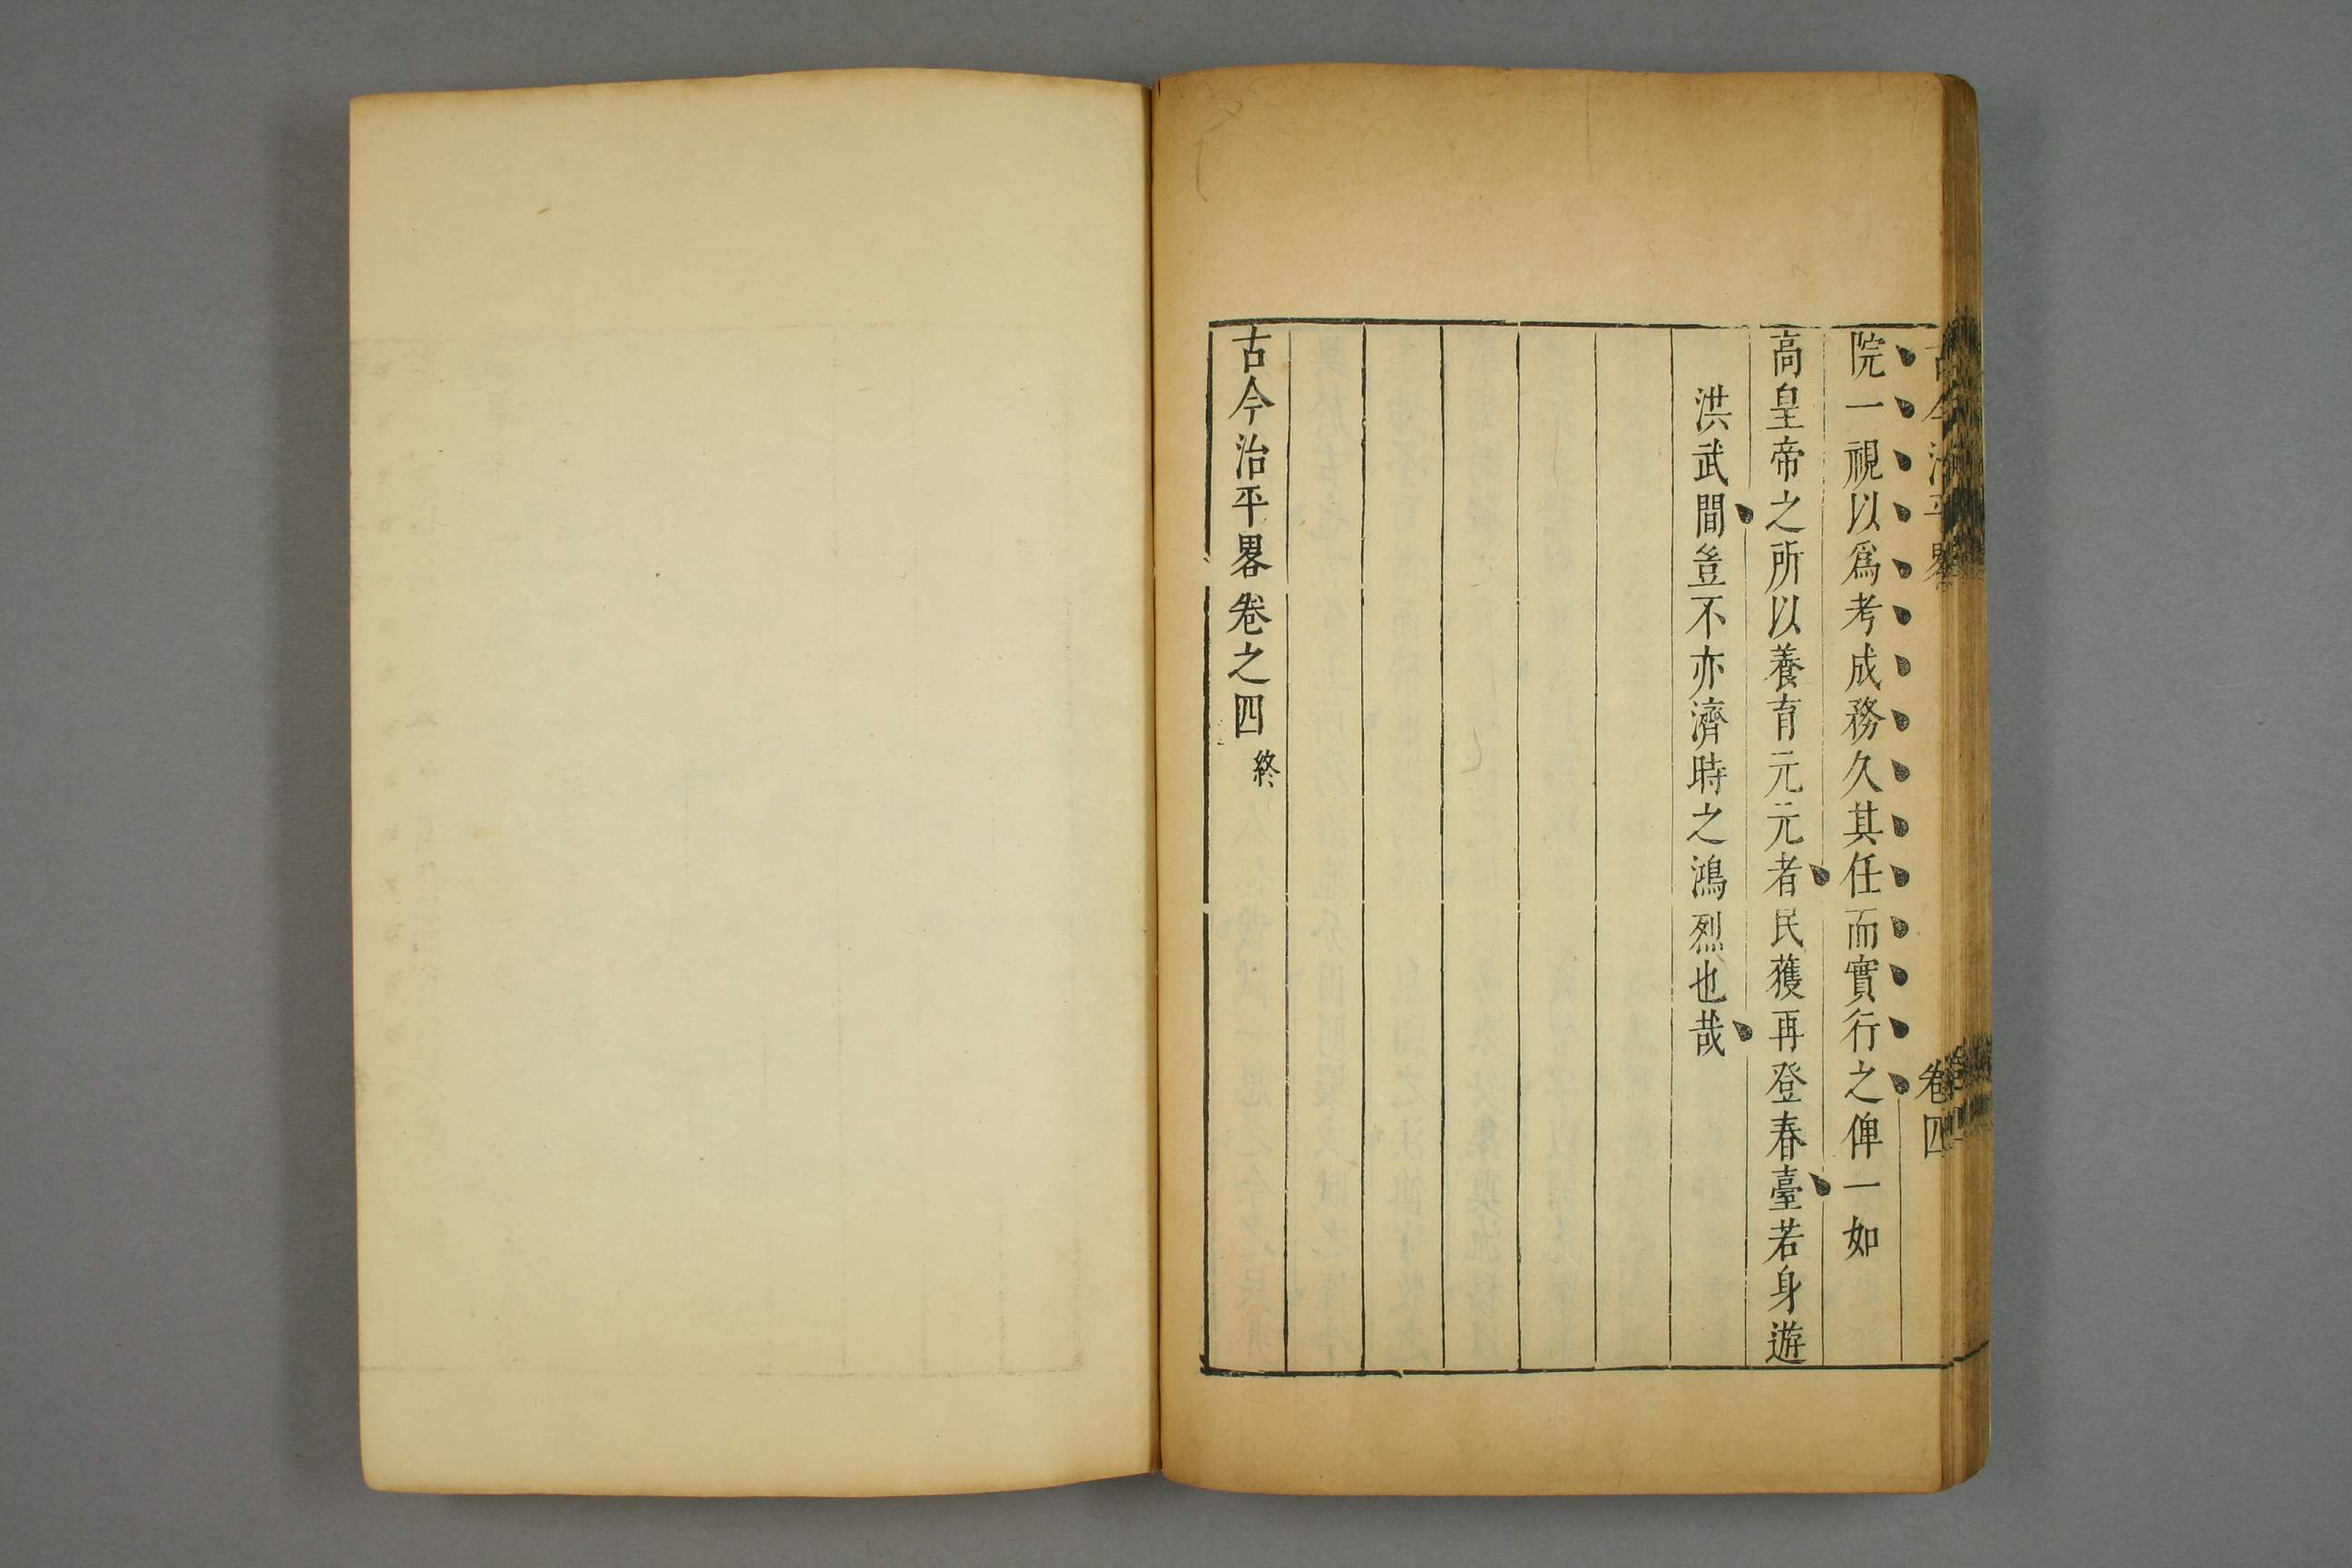 古今治平畧
卷四
院一視以爲考成務久其任而實行之俾一如
高皇帝之所以養育元元者民獲再登春臺若身遊
洪武間豈不亦濟時之鴻烈也哉
古今治平畧卷之四終